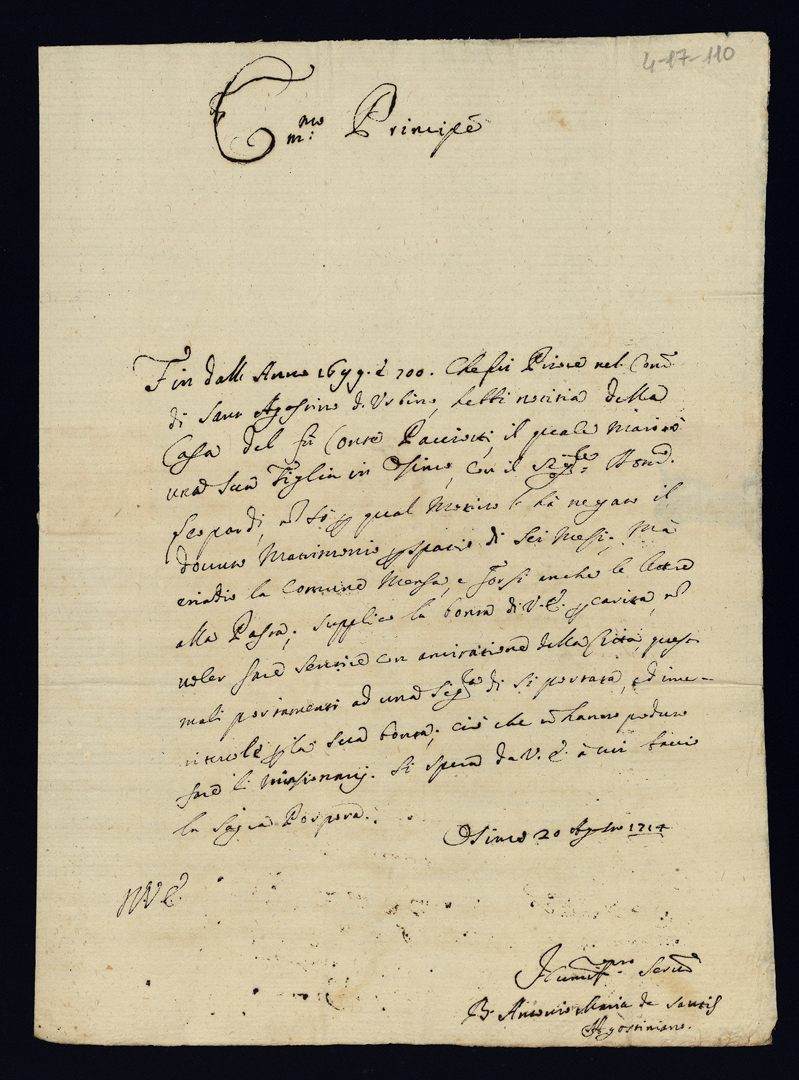 4-17-110
Em.mo Principe
Fin dall Anno 1699. è 700. che fui Priore nel Con.
di Sant Agostino d. Urbino, hebbi notitia della
Casa del fù Conte Pacciotti, il quale maritò
una sua Figlia in Osimo, con il Sig.le
Leopardi, nō sò p qual motivo le hà negato il
douuto Matrimonio p spatio di sei Mesi; Mà
etiadio la Comune Mensa, e forsi anche le lettere
alla Posta; supplico la bontà di V. E. p carità, nō
voler fare sentire con amiratione della Città, questi
mali portamenti ad una Sig.ra di si portata, ed ime-
ritevole p la sua bontà; ciò che nō hanno potuto
fare li missionarij. Si spera da V. E. à cui bacio
la Sagra Porpora.
Osimo 20 Agosto 1714
D V E.
Humil.mo Seru.
Fr Antonio Maria de Santis
Agostiniano.